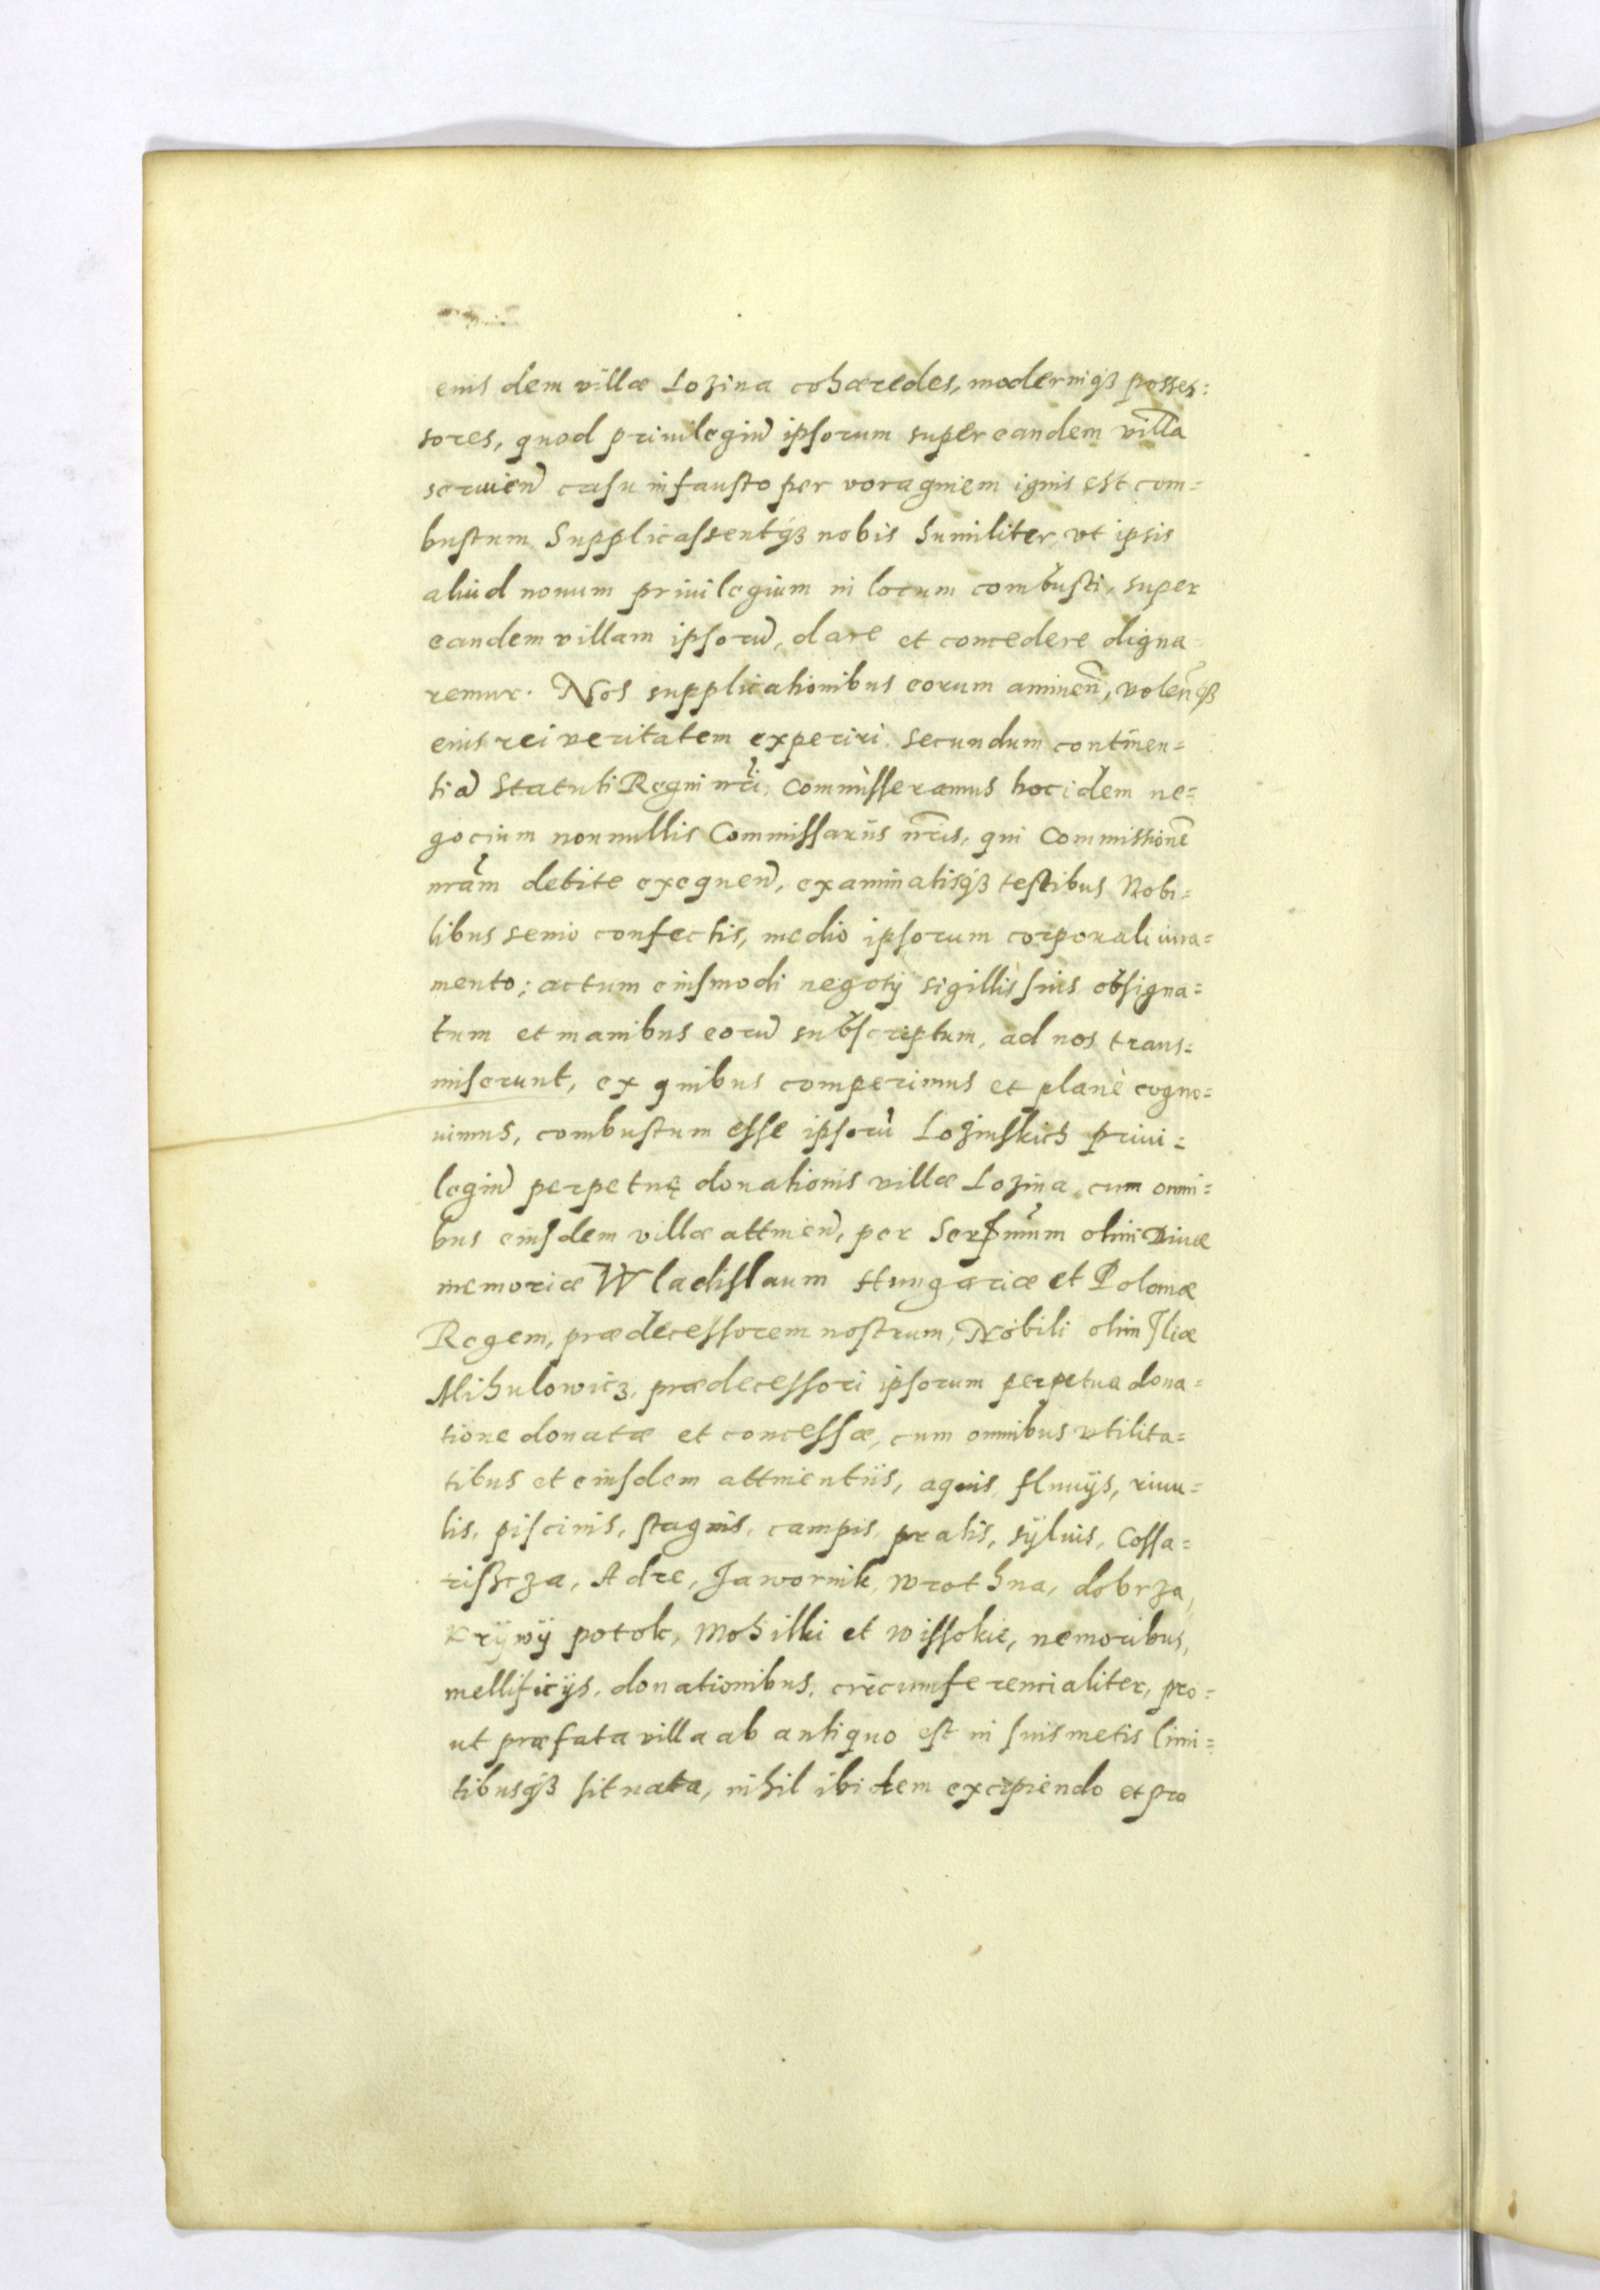 eius dem villæ Lozina cohæredes, moderniq3 posses:
sores, quod priuilegiũ ipsorum super eandem villã
seruieñ casu infausto per voraginem ignis est com=
bustum Supplicassentq3 nobis humiliter, vt ipsis
aliud nouum priuilegium in locum combusti, super
eandem villam ipsorũ, dare et concedere digna=
remur. Nos supplicationibus eorum annueñ, voleñq3
eius rei veritatem experiri, secundum continen=
tiã Statuti Regni nri, Commisseramus hoc idem ne=
gocium nonnullis Commissariis nris, qui Commissionẽ
nram debite exequeñ, examinatisq3 testibus Nobi=
libus senio confectis, medio ipsorum corporali iura=
mento; actum eiusmodi negotÿ sigillis suis obsigna=
tum et manibus eorũ subscriptum, ad nos trans=
miserunt, ex quibus comperimus et planè cogno=
uimus, combustum esse ipsorũ Lozinskich priui=
legiũ perpetuę donationis villæ Lozina, cum omni=
bus eiusdem villæ attineñ, per Serſmum olim Diuæ
memoriæ Wladislaum Hungariæ et Poloniæ
Regem, prædecessorem nostrum, Nobili olim Iliæ
Mihulowicz, prædecessori ipsorum perpetua dona=
tione donatæ et concessæ, cum omnibus vtilita=
tibus et eiusdem attinentiis, aquis, fluuijs, riuu=
lis, piscinis, stagnis, campis, pratis, sÿluis, Cossa=
riszcza, Adre, Jawornik, Wrothna, dobrza,
Krÿwÿ potok, Mohilki et Wissokie, nemoribus,
mellificijs, donationibus, circumferencialiter, pro=
ut præfata villa ab antiquo est in suis metis limi=
tibusq3 situata, nihil ibidem excipiendo et pro